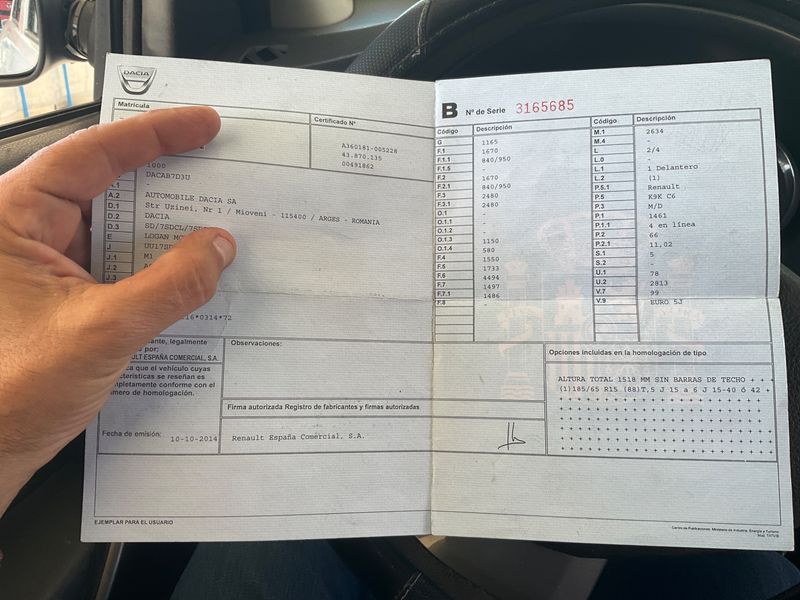 DACIA
Matrícula
Certificado Nº
A360181-005228
43.870.135
00491862
1000
DACAB7D3U
A.1 -
A.2 AUTOMOBILE DACIA SA
D.1 Str Uzinei, Nr 1 / Mioveni - 115400 / ARGES - ROMANIA
D.2 DACIA
D.3 SD/7SDCL/7SD
E LOGAN MC
J UU17SD
J.1 M1
J.2
J.3
16*0314*72
ante, legalmente
por:
LT ESPAÑA COMERCIAL, S.A.
ca que el vehículo cuyas
acterísticas se reseñan es
mpletamente conforme con el
úmero de homologación.
Observaciones:
Firma autorizada Registro de fabricantes y firmas autorizadas
Fecha de emisión: 10-10-2014
Renault España Comercial, S.A.
EJEMPLAR PARA EL USUARIO
B Nº de Serie 3165685
Código Descripción
G 1165
F.1 1670
F.1.1 840/950
F.1.5 -
F.2 1670
F.2.1 840/950
F.3 2480
F.3.1 2480
O.1 -
O.1.1 -
O.1.2 -
O.1.3 1150
O.1.4 580
F.4 1550
F.5 1733
F.6 4494
F.7 1497
F.7.1 1486
F.8 -
Código Descripción
M.1 2634
M.4 -
L 2/4
L.0 -
L.1 1 Delantero
L.2 (1)
P.5.1 Renault
P.5 K9K C6
P.3 M/D
P.1 1461
P.1.1 4 en línea
P.2 66
P.2.1 11,02
S.1 5
S.2 -
U.1 78
U.2 2813
V.7 99
V.9 EURO 5J
Opciones incluidas en la homologación de tipo
ALTURA TOTAL 1518 MM SIN BARRAS DE TECHO + + +
(1)185/65 R15 (88)T,5 J 15 a 6 J 15-40 ó 42 +
Centro de Publicaciones. Ministerio de Industria, Energía y Turismo